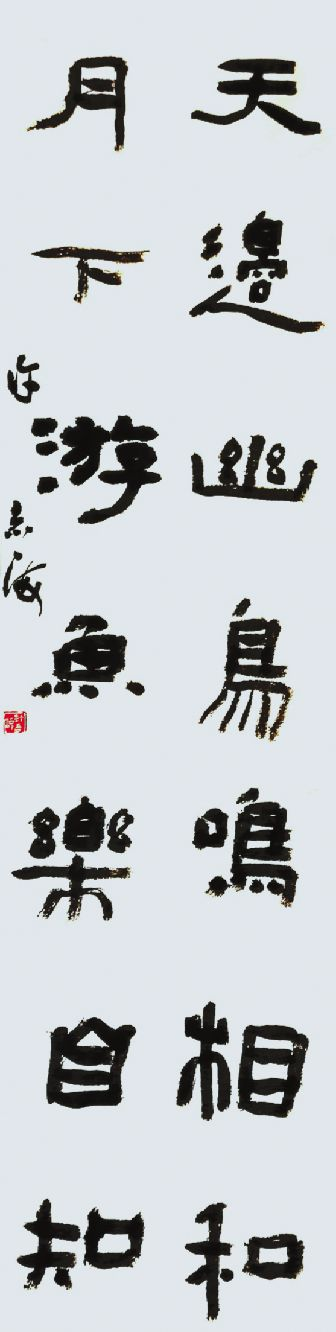 天邊幽鳥鳴相和
月下游魚樂自知
志海